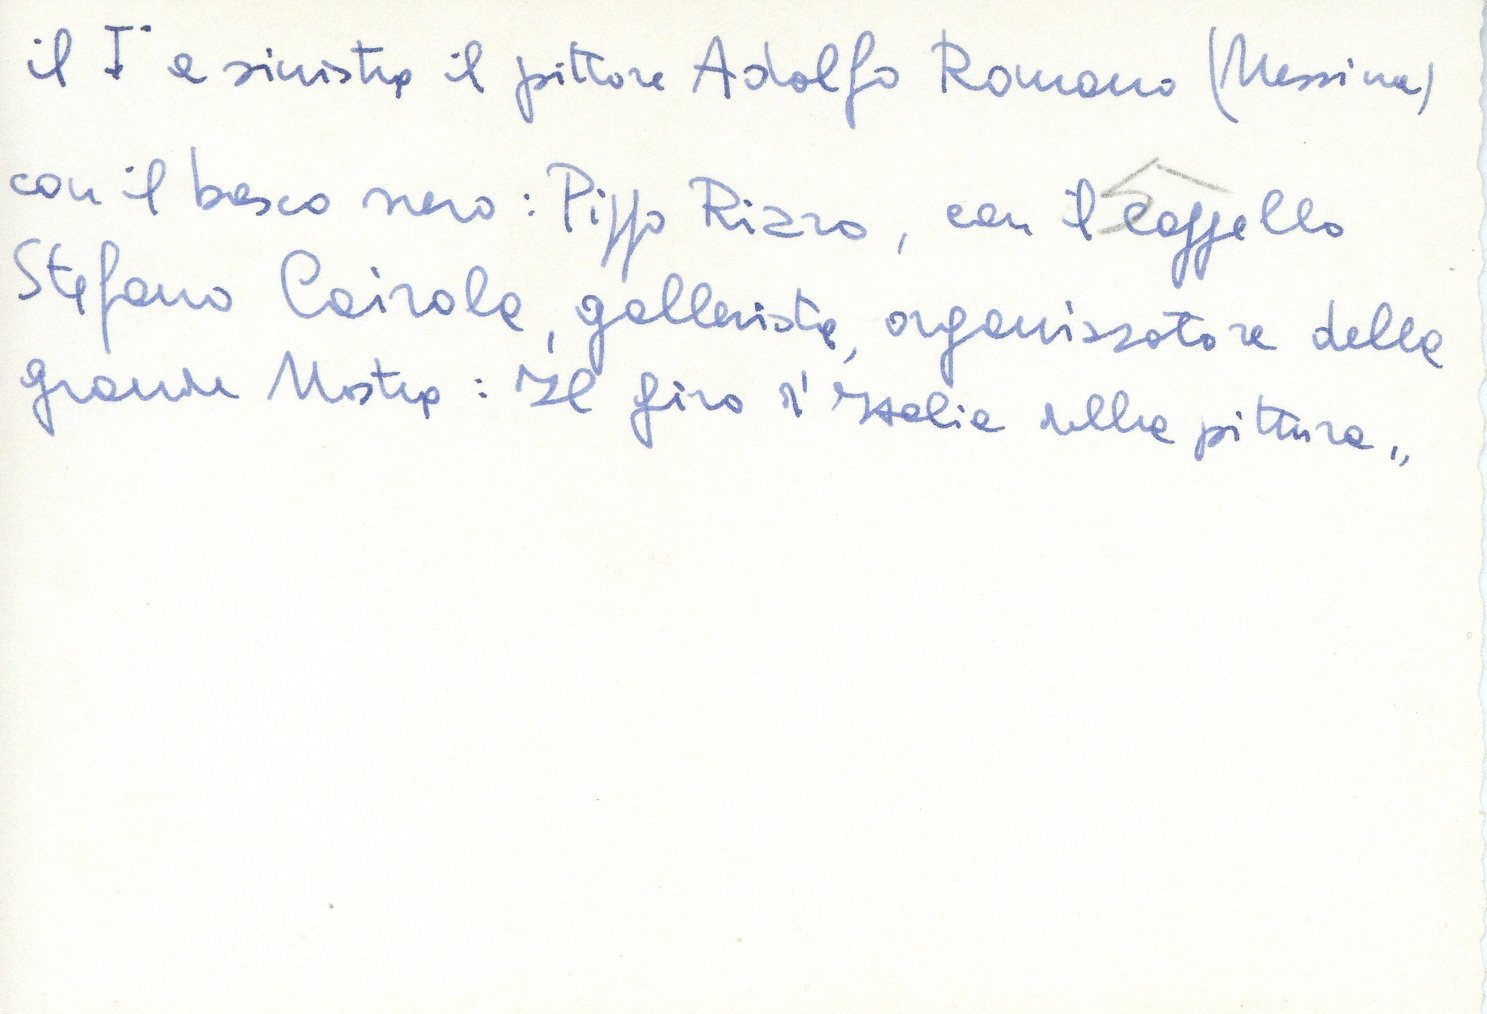 il I° a sinistra il pittore Adolfo Romano (Messina)
con il basco nero: Pippo Rizzo, con il cappello
Stefano Cairola, gallerista, organizzatore della
grande Mostra: "Il giro d'Italia della pittura"